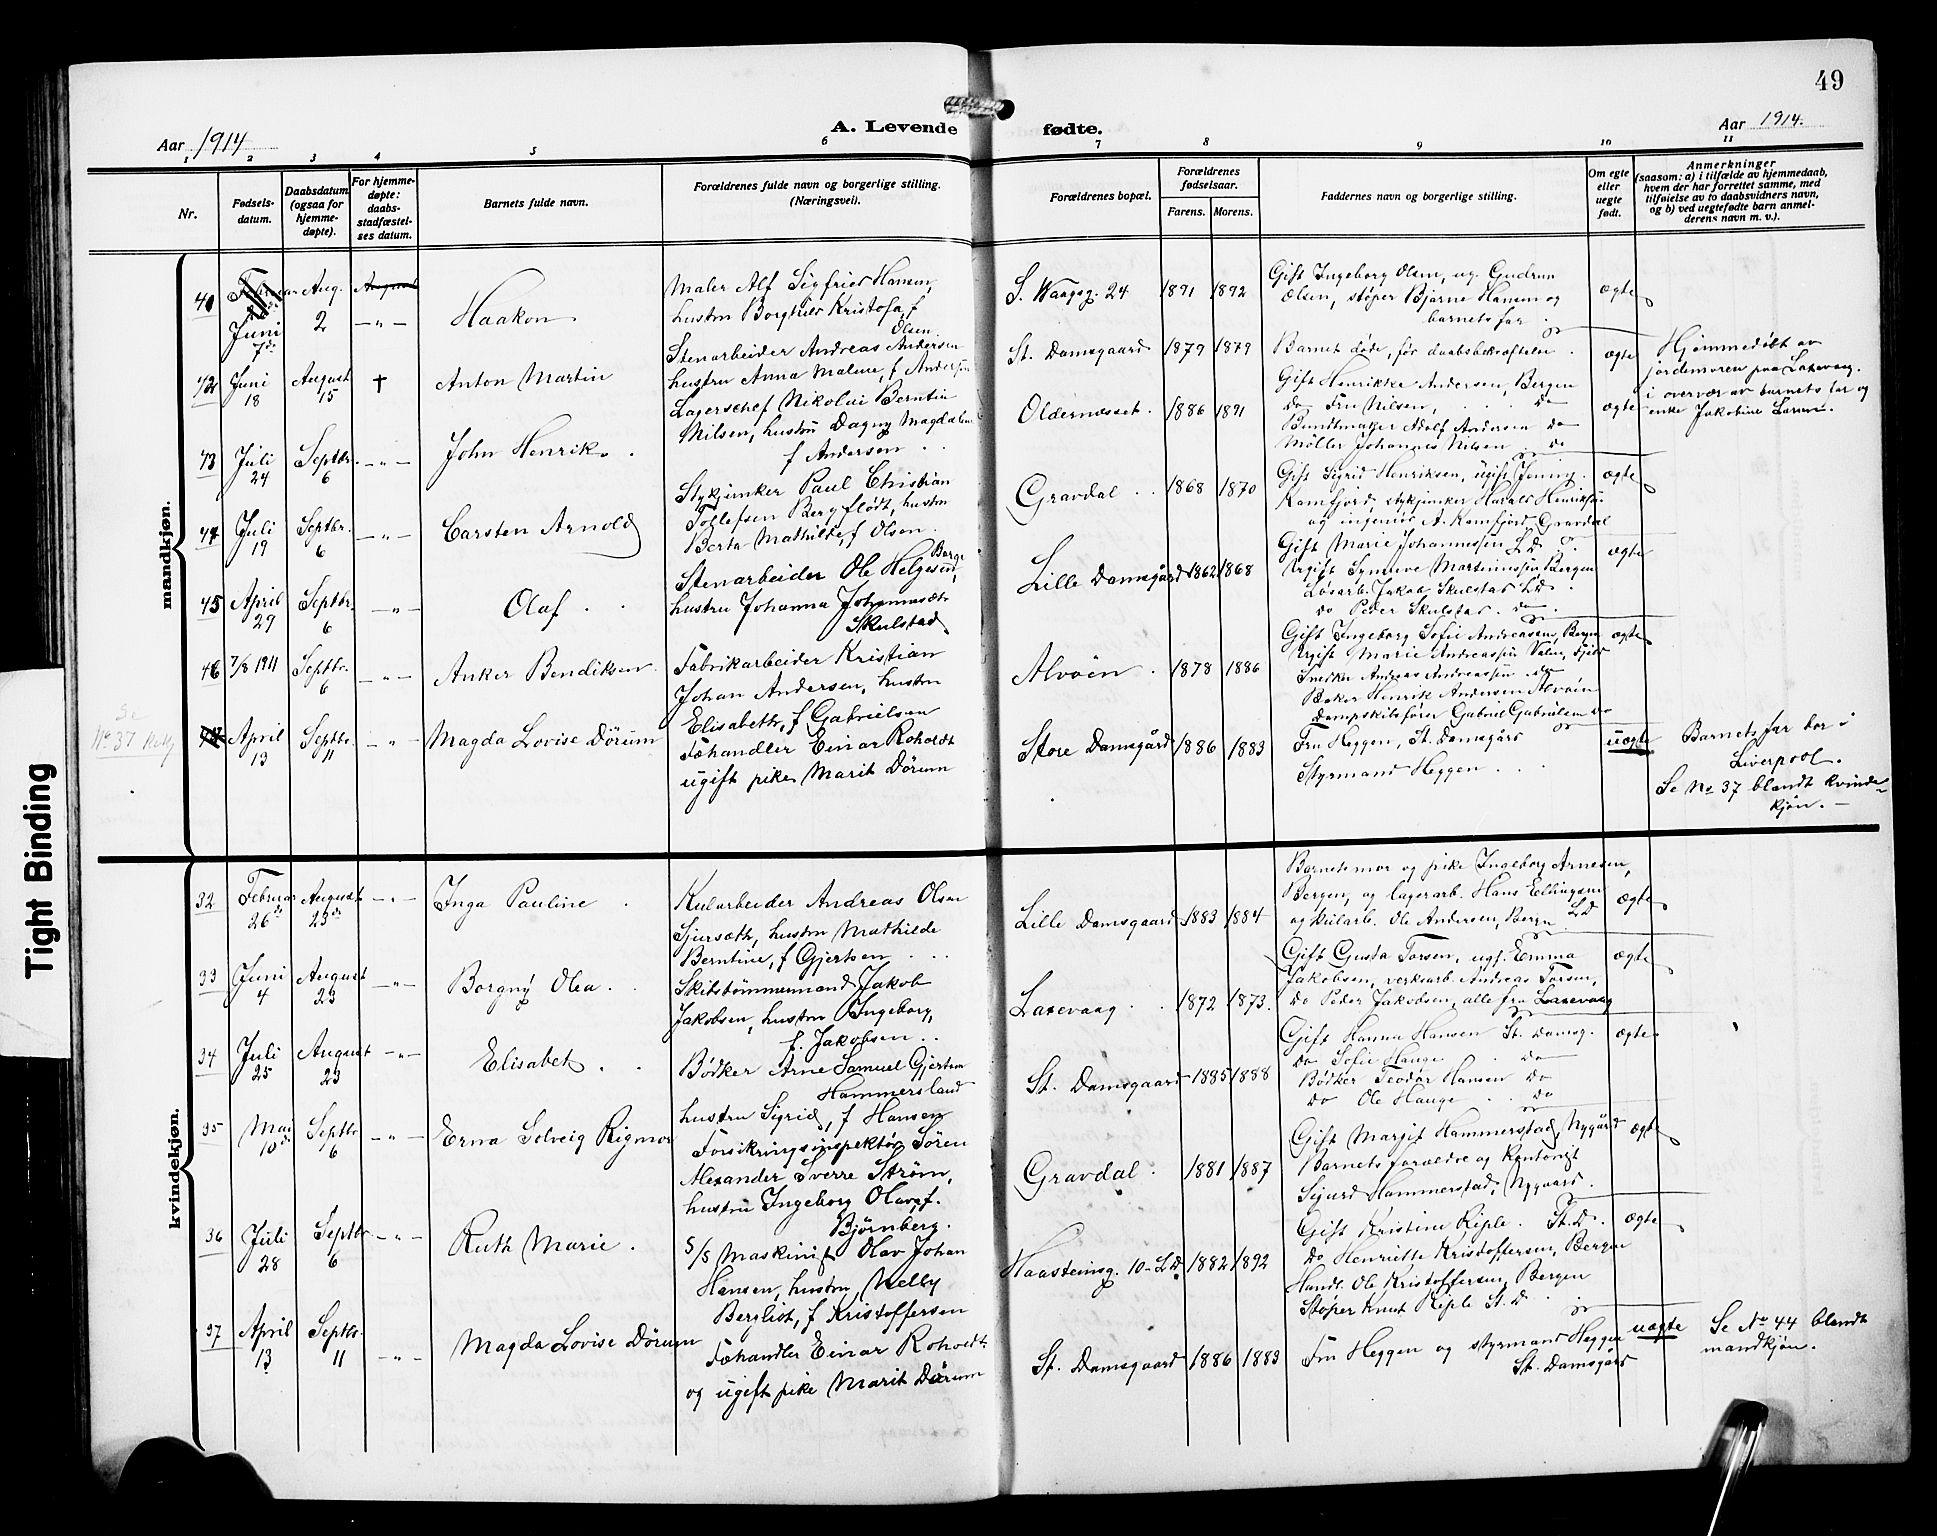 49
A. Levende fødte.
Aar 1914
Aar 1914.
1 2 3 4 5 6 7 8 9 10 11
Nr.
Fødselsdatum.
Daabsdatum (ogsaa for hjemmedøpte).
For hjemmedøpte: daabsstadfæstelses datum.
Barnets fulde navn.
Forældrenes fulde navn og borgerlige stilling. (Næringsvei).
Forældrenes bopæl.
Forældrenes fødselsaar.
Farens. Morens.
Faddernes navn og borgerlige stilling.
Om egte eller uegte født.
Anmerkninger
(saasom: a) i tilfælde av hjemmedaab,
hvem der har forrettet samme, med
tilføielse av to daabsvidners navn,
og b) ved uegtefødte barn anmelderens navn m. v.).
mandkjøn.
41 Juni 7de Aug. 2 Haakon
Maler Alf Sigfried Hansen,
hustru Borghild Kristofa, f
Olsen.
S. Waagsg. 24 1891 1892
Gift Ingeborg Olsen, ug. Gudrun
Olsen, støper Bjarne Hansen og
barnets far.
ægte
42 Juni 18 August 15 † Anton Martin
Stenarbeider Andreas Andersen
hustru Anna Maline, f Andersen
St. Damsgaard 1879 1879
Barnet døde, før daabsbekræftelsen.
ægte
Hjemmedøbt av
jordmoren paa Laxevaag.
i overvær av barnets far og
enke Jakobine Larsen.
43 Juli 24 Septbr. 6 John Henrik
Lagerschef Nikolai Berntin
Nilsen, hustru Dagny Magdalene
f Andersen
Oldernæsset. 1886 1891
Gift Henrikke Andersen, Bergen
do Fru Nilsen, do
Bundtmaker Adolf Andersen do
Møller Johannes Nilsen do
ægte
44 Juli 19 Septbr. 6 Carsten Arnold
Stykjunker Paul Christian
Tollefsen Bergflødt, hustru
Berta Mathilde, f Olsen.
Gravdal 1868 1870
Gift Sigrid Henriksen, ugift Jenny
Kamfjord, stykjunker Harald Henriksen
og ingeniør A. Kamfjord, Gravdal
ægte
45 April 29 Septbr. 6 Olaf
Stenarbeider Ole Helgesen Berge,
hustru Johanna Johannesdtr
Skulstad
Lille Damsgård 1862 1868
Gift Marie Johannessen LD
Ugift Synneve Martinussen Bergen
Løsarb. Jakob Skulstad LD
do Peder Skulstad. do
ægte
46 7/8 1911 Septbr. 6 Anker Bendiksen
Fabrikarbeider Kristian
Johan Andersen, hustru
Elisabeth, f Gabrielsen
Alvøen 1878 1886
Gift Ingeborg Sofie Andreassen, Bergen
Ugift Marie Andreassen Valen, Fjeld
Snedker Andreas Andreassen do
Baker Henrik Andersen Alvøen
Dampskibsfører Gabriel Gabrielsen do
ægte
Se
No 37
April 13 Septbr. 11 Magda Lovise Dørum
Fehandler Einar Roholdt
ugift pike Marit Dørum
Store Damsgård 1886 1883
Fru Heggen, St. Damsgård
Styrmand Heggen
uægte
Barnets far bor i
Liverpool.
Se No 37 blandt kvinde-
kjøn. –
kvindekjøn.
32 Februar 26de August 23de Inga Pauline
Kularbeider Andreas Olsen
Sjursæth, hustru Mathilde
Berntine, f Gjertsen
Lille Damsgaard 1883 1884
Barnets mor og pike Ingeborg Arnesen,
Bergen, og lagerarb. Hans Ellingsen LD
og kularb. Ole Andersen, Bergen
ægte
33 Juni 4 August 23 Borgny Olea
Skibstømmermand Jakob
Jakobsen, hustru Ingeborg,
f. Jakobsen
Laxevaag 1872 1873.
Gift Gusta Torsen, ugf. Emma
Jakobsen, verksarb Andreas Torsen,
do Peder Jakobsen, alle fra Laxevaag
ægte
34 Juli 25 August 23 Elisabet
Bødker Arne Samuel Gjertsen
Hammersland
hustru Sigrid, f Hansen
St. Damsgaard 1885 1888
Gift Hanna Hansen St. Damsg.
do Sofie Hauge do
Bødker Teodor Hansen do
do Ole Hauge do
ægte
35 Mai 10de Septbr. 6 Erna Solveig Rigmor
Forsikringsinspektør Søren
Alexander Sverre Strøm,
hustru Ingeborg Olava, f.
Bjørnberg.
Gravdal 1881 1887
Gift Margit Hammerstad, Nygård
Barnets forældre og Kontorist
Sigurd Hammerstad, Nygaard.
ægte
36 Juli 28 Septbr 6 Ruth Marie
S/S Maskinist Olav Johan
Hansen, hustru, Nelly
Bergliot, f Kristoffersen
Haasteinsg. 10 - LD. 1882 1892
Gift Kristine Riple. St. D.
do Henriette Kristoffersen, Bergen
Handl. Ole Kristoffersen, Bergen
Støper Knut Riple St. D
ægte
37 April 13 Septbr. 11 Magda Lovise Dørum
Fehandler Einar Roholdt
og ugift pike Marit Dørum
St. Damsgaard 1886 1883
Fru Heggen og styrmand Heggen
St. Damsgård
uægte
Se No 44 blandt
mandkjøn.
Tight Binding